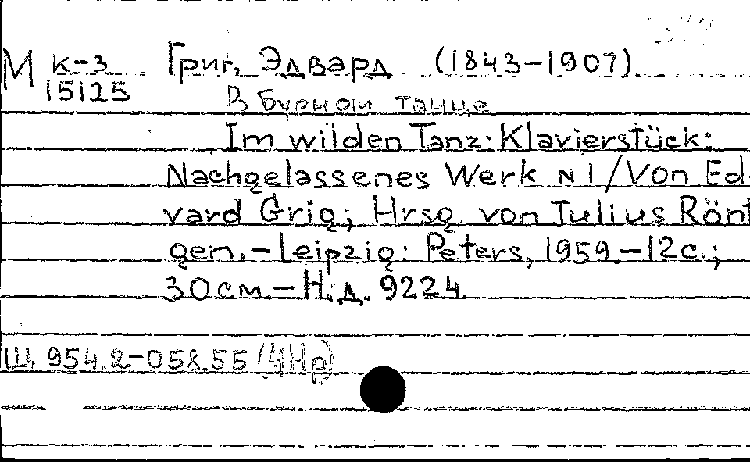 М К-3 Григ, Эдвард (1843-1907)
15125 В бурном танце
Im wilden Tanz: Klavierstück:
Nachgelassenes Werk N 1 / Von Ed-
vard Grig; Hrsg. von Julius Rönt-
gen. - Leipzig: Peters, 1959. - 12 с.;
30 см. - Н.д. 9224.
Щ 954.2-058.55 (4Нр)